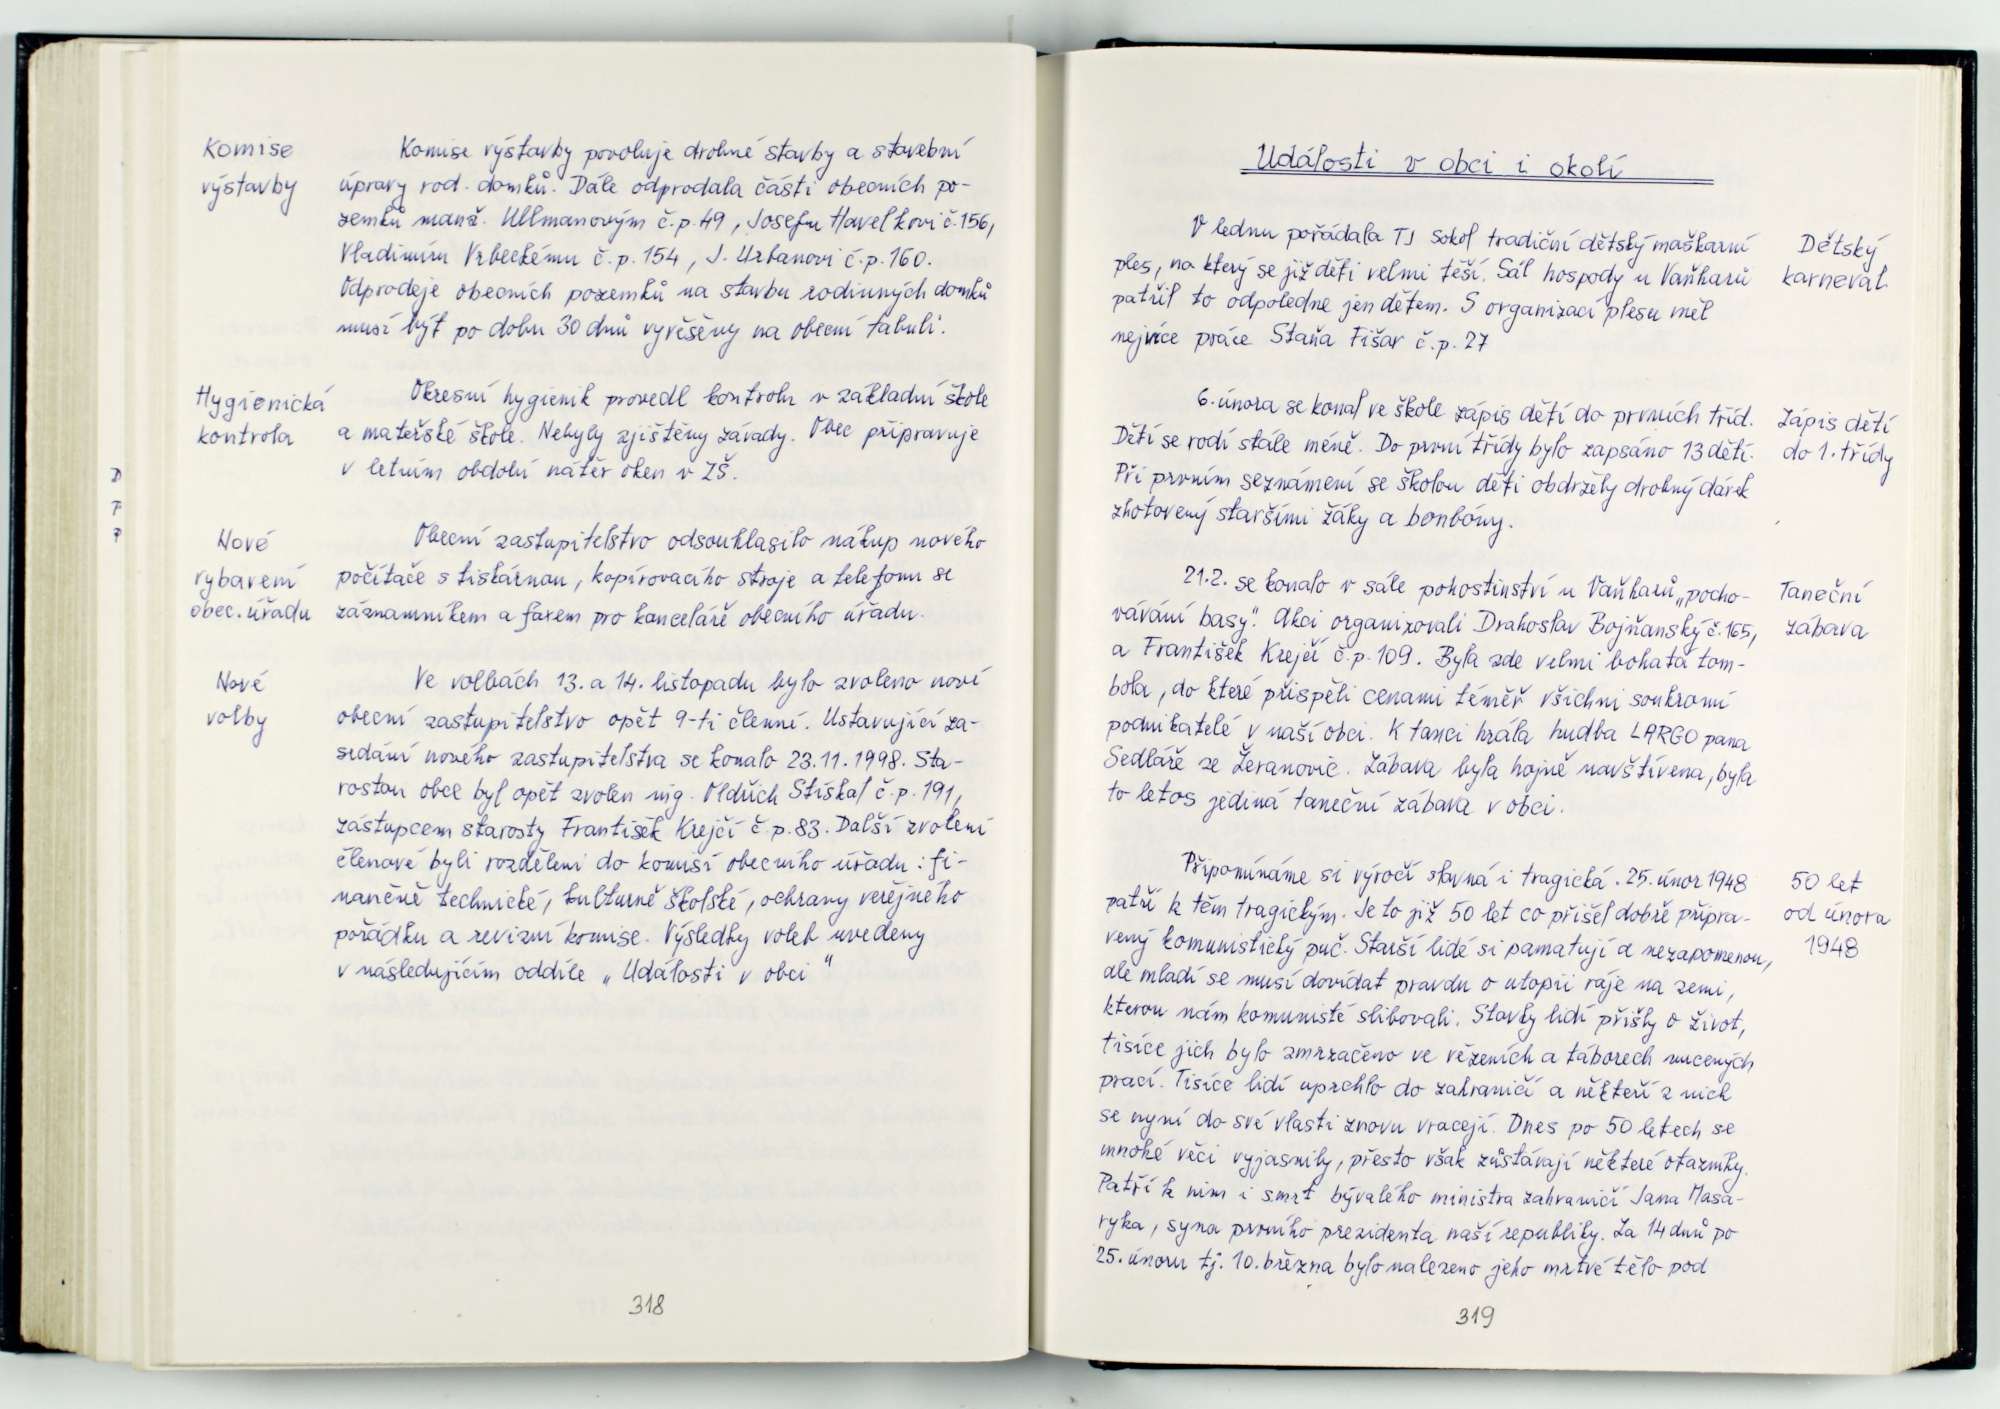 Komise
výstavby
Komise výstavby povoluje drobné stavby a stavební
úpravy rod. domků. Dále odprodala části obecních po-
zemků manž. Ullmanovým č.p. 49, Josefu Havelkovi č. 156,
Vladimíru Vrbeckému č.p. 154, J. Urbanovi č.p. 160.
Odprodeje obecních pozemků na stavbu rodinných domků
musí být po dobu 30 dnů vyvěšeny na obecní tabuli.
Hygienická
kontrola
Okresní hygienik provedl kontrolu v základní škole
a mateřské škole. Nebyly zjištěny závady. Obec připravuje
v letním období nátěr oken v ZŠ.
Nové
vybavení
obec. úřadu
Obecní zastupitelstvo odsouhlasilo nákup nového
počítače s tiskárnou, kopírovacího stroje a telefonu se
záznamníkem a faxem pro kanceláře obecního úřadu.
Nové
volby
Ve volbách 13. a 14. listopadu bylo zvoleno nové
obecní zastupitelstvo opět 9-ti členné. Ustavující za-
sedání nového zastupitelstva se konalo 23.11.1998. Sta-
rostou obce byl opět zvolen mg. Oldřich Stískal č.p. 191,
zástupcem starosty František Krejčí č.p. 83. Další zvolení
členové byli rozděleni do komisí obecního úřadu: fi-
nančně technické, kulturně školské, ochrany veřejného
pořádku a revizní komise. Výsledky voleb uvedeny
v následujícím oddíle „Události v obci"
318
Události v obci i okolí
V lednu pořádala TJ Sokol tradiční dětský maškarní
ples, na který se již děti velmi těší. Sál hospody u Vaňharů
patřil to odpoledne jen dětem. S organizací plesu měl
nejvíce práce Staňa Fišar č.p. 27
Dětský
karneval
6. února se konal ve škole zápis dětí do prvních tříd.
Dětí se rodí stále méně. Do první třídy bylo zapsáno 13 dětí.
Při prvním seznámení se školou děti obdržely drobný dárek
zhotovený staršími žáky a bonbóny.
Zápis dětí
do 1. třídy
21.2. se konalo v sále pohostinství u Vaňharů „pocho-
vávání basy". Akci organizovali Drahoslav Bojňanský č. 165,
a František Krejčí č.p. 109. Byla zde velmi bohatá tom-
bola, do které přispěli cenami téměř všichni soukromí
podnikatelé v naší obci. K tanci hrála hudba LARGO pana
Sedláře ze Žeranovic. Zábava byla hojně navštívena, byla
to letos jediná taneční zábava v obci.
Taneční
zábava
Připomínáme si výročí slavná i tragická. 25. únor 1948
patří k těm tragickým. Je to již 50 let co přišel dobře připra-
vený komunistický puč. Starší lidé si pamatují a nezapomenou,
ale mladí se musí dovídat pravdu o utopii ráje na zemi,
kterou nám komunisté slibovali. Stovky lidí přišly o život,
tisíce jich bylo zmrzačeno ve vězeních a táborech nucených
prací. Tisíce lidí uprchlo do zahraničí a někteří z nich
se nyní do své vlasti znovu vracejí. Dnes po 50 letech se
mnohé věci vyjasnily, přesto však zůstávají některé otazníky.
Patří k nim i smrt bývalého ministra zahraničí Jana Masa-
ryka, syna prvního prezidenta naší republiky. Za 14 dnů po
25. únoru tj. 10. března bylo nalezeno jeho mrtvé tělo pod
50 let
od února
1948
319